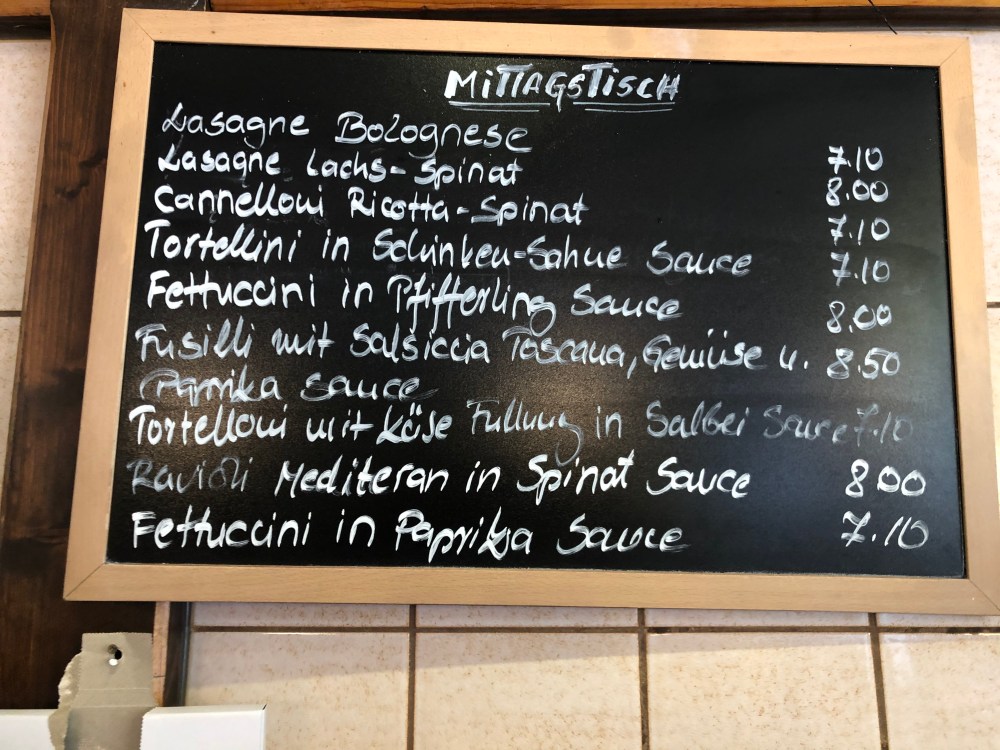 MiTTAGSTiSCH
Lasagne Bolognese 7.10
Lasagne Lachs-Spinat 8.00
Cannelloni Ricotta-Spinat 7.10
Tortellini in Schinken-Sahne Sauce 7.10
Fettuccini in Pfifferling Sauce 8.00
Fusilli mit Salsiccia Toscana, Gemüse u. 8.50
Paprika Sauce
Tortelloni mit Käse Füllung in Salbei Sauce 7.10
Ravioli Mediteran in Spinat Sauce 8.00
Fettuccini in Paprika Sauce 7.10